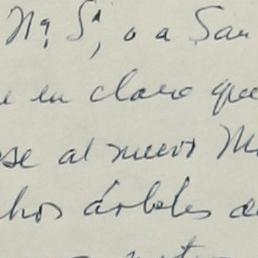 Nª Sª, o a San
en claro que
se al nuevo
hos árboles